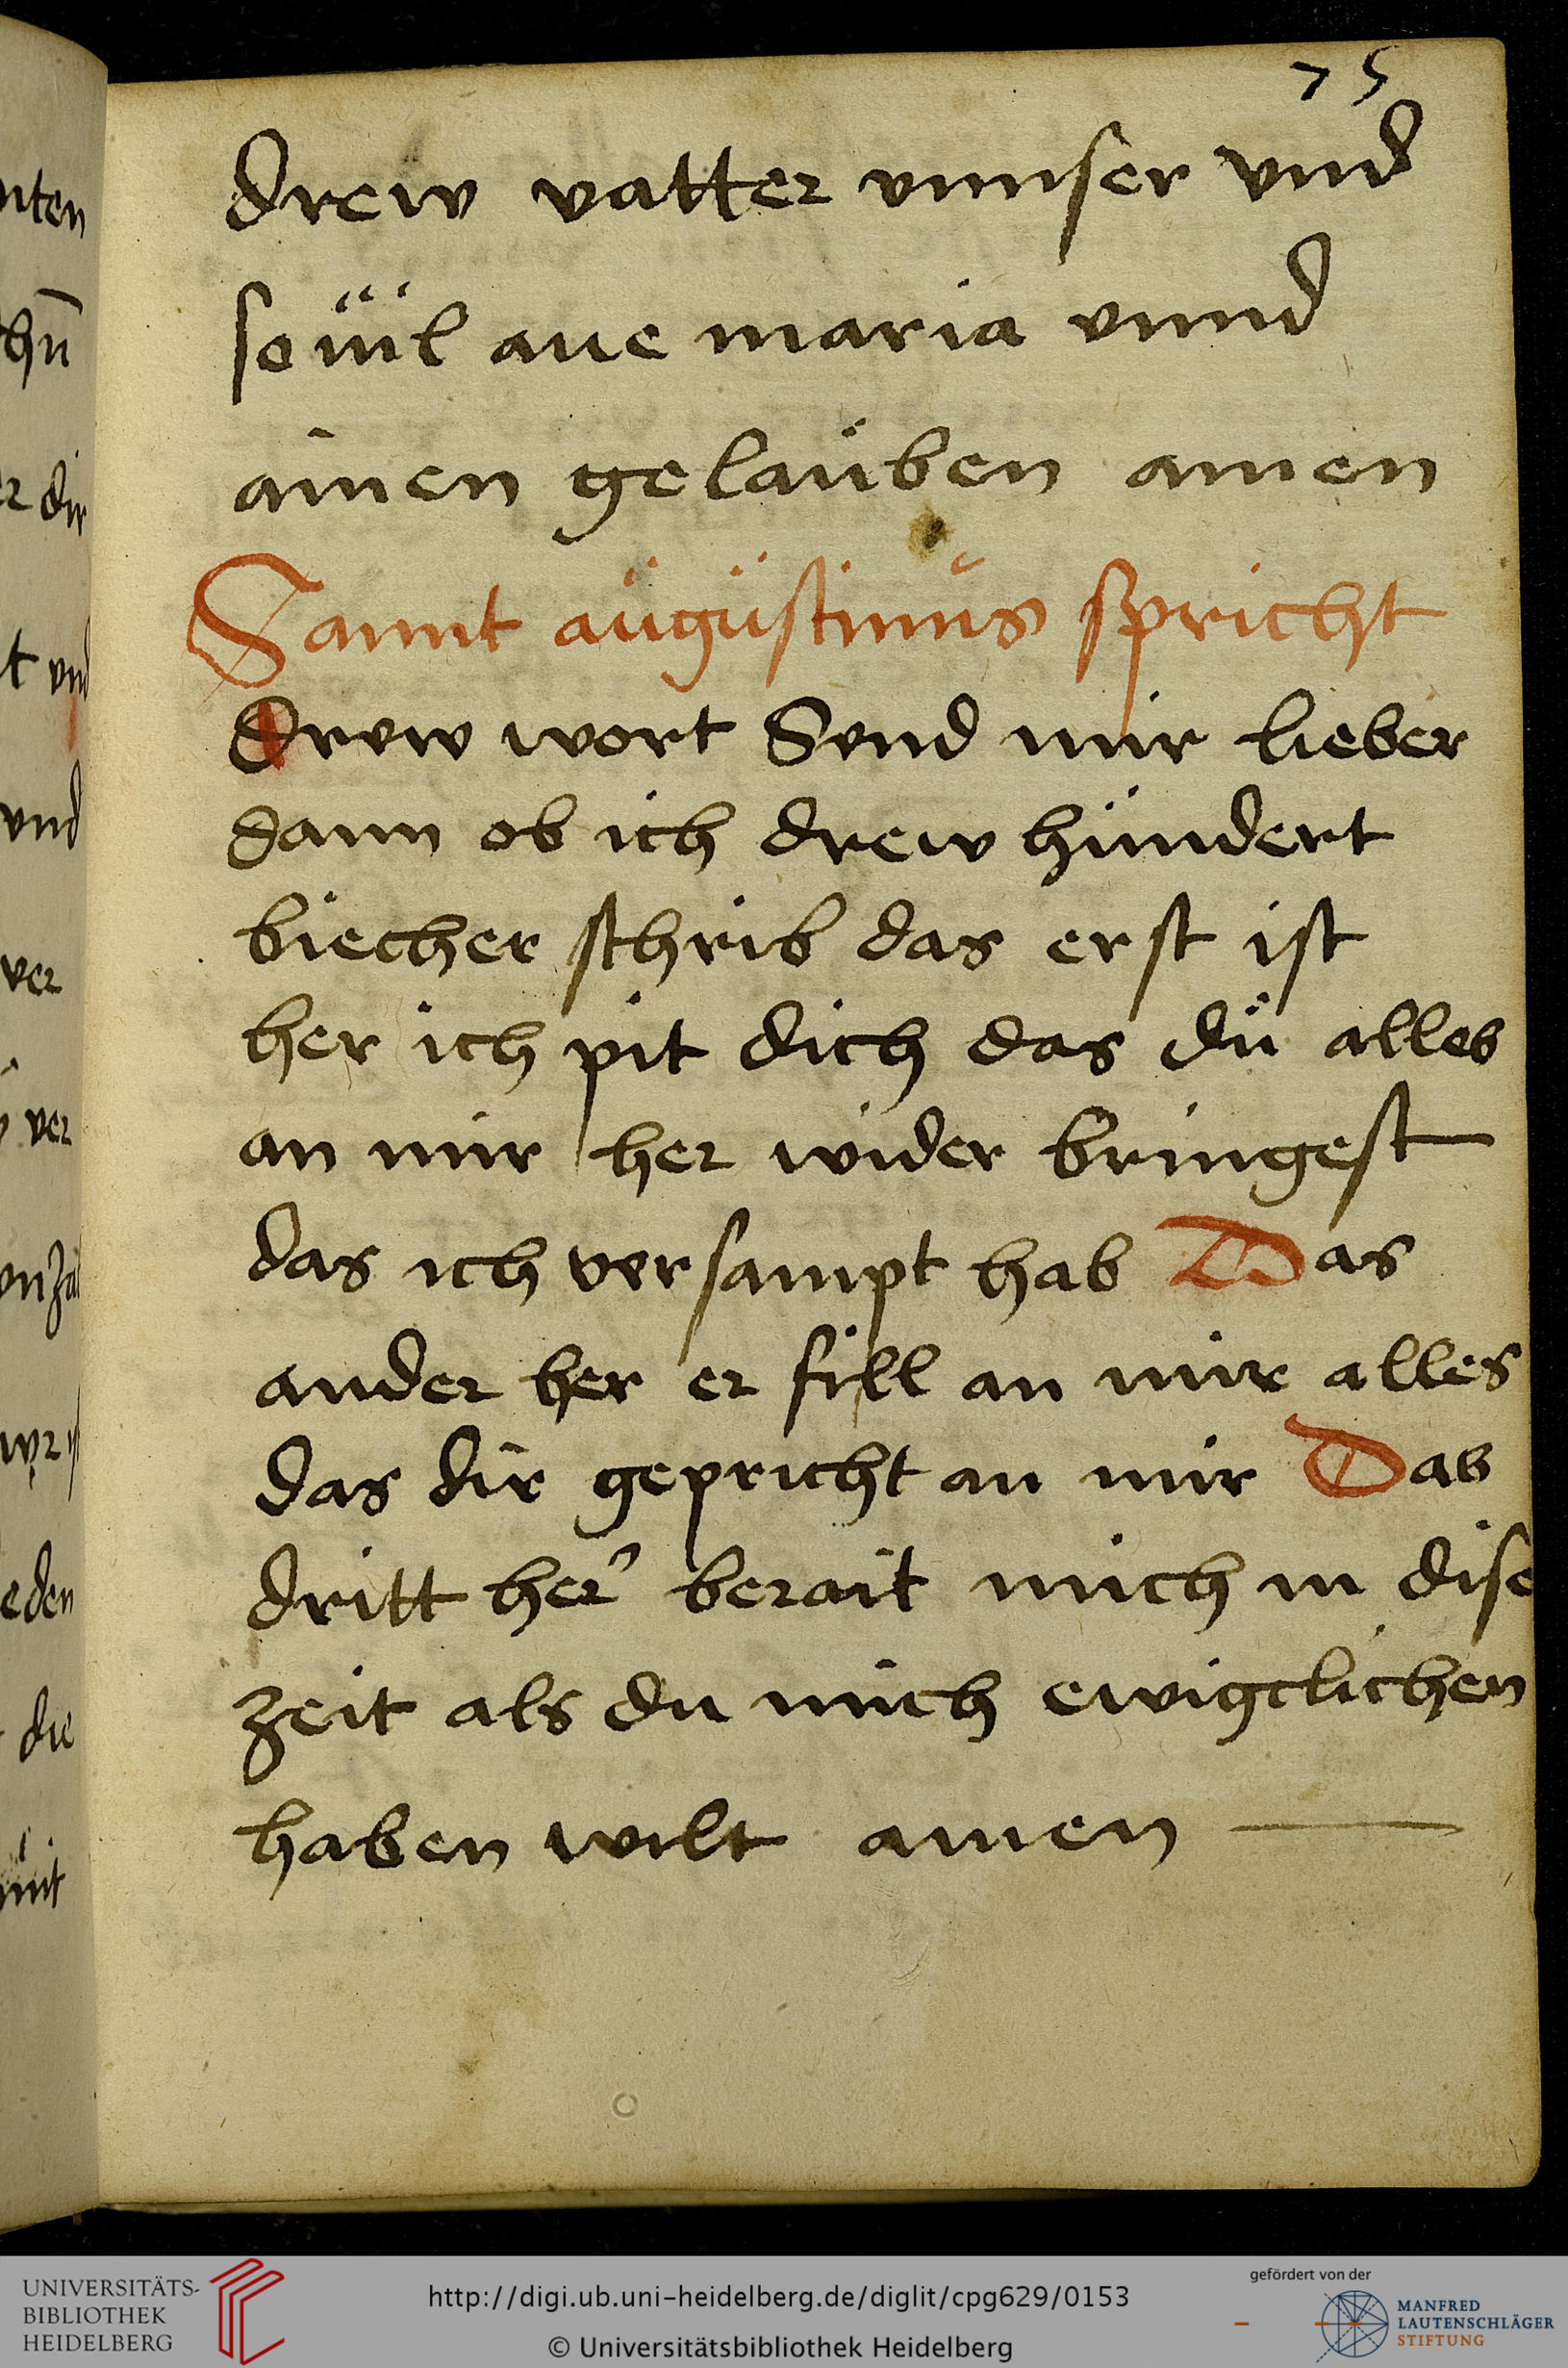 75
drew vatter vnnser vnd
souil aue maria vnnd
ainen gelauben amen
Sannt augustinus spricht
drew wort Send mir lieber
dann ob ich drew hundert
biecher schrib das erst ist
her ich pit dich das du alles
an mir her wider bringest
das ich versampt hab Das
ander her er fill an mir alles
das dir gepricht an mir Das
dritt her berait mich in dise
zeit als du mich ewigclichen
haben wilt amen
UNIVERSITÄTS-
BIBLIOTHEK
HEIDELBERG
http://digi.ub.uni-heidelberg.de/diglit/cpg629/0153
© Universitätsbibliothek Heidelberg
gefördert von der
MANFRED
LAUTENSCHLÄGER
STIFTUNG